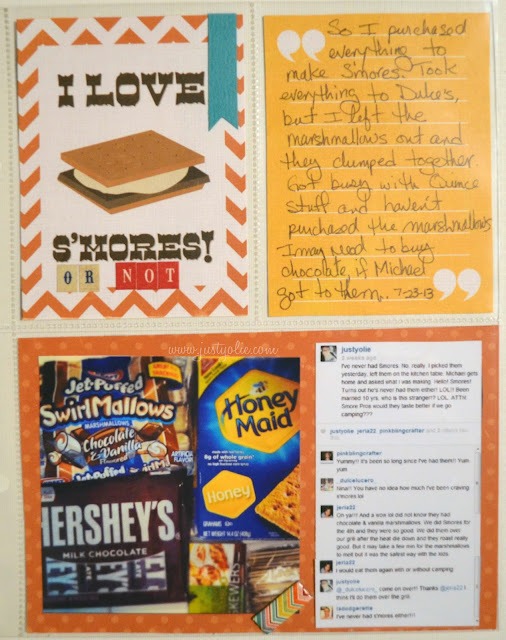 I LOVE
S'MORES!
OR NOT
So I purchased
everything to
make S'mores. Took
everything to Dulce's,
but I left the
marshmallows out and
they clumped together.
Got busy with
stuff and haven't
purchased the marshmallows
I may need to buy
chocolate, if Michael
got to them.. 7-23-13
www.justyolie.com
Jet-Puffed
SwirlMallows
MARSHMALLOWS
Chocolate
& Vanilla
Flavored
ARTIFICIAL
FLAVOR
Jet-Puffed
HERSHEY'S
MILK CHOCOLATE
Honey
Maid
8g of whole grain
Honey
GRAHAMS
NET WT 14.4 OZ (408g)
justyolie
2 weeks ago
I've never had Smores. No. really. I picked them
yesterday, left them on the kitchen table. Michael gets
home and asked what I was making. Hello! Smores!
Turns out he's never had them either! LOL!! Been
married 10 yrs, who is this stranger!? LOL. ATTN:
Smore Pros would they taste better if we go
camping???
justyolie, jeria22, pinkblingcrafter and
pinkblingcrafter
Yummy!! It's been so long since I've had them!! Yum
yum
_dulcelucero
Nina!! You have no idea how much I've been craving
s'mores lol
jeria22
Oh ya!!! And a wow lol did not know they had
chocolate & vanilla marshmallows. We did Smores for
the 4th and they were so good. We did them over
our grill after the heat die down and they roast really
good. But it may take a few min for the marshmallows
to melt but it was the safest way with the kids
jeria22
I would eat them again with or without camping
justyolie
come on over!! Thanks @jeria22 I
think I'll do them over the grill.
I've never had s'mores either!!!